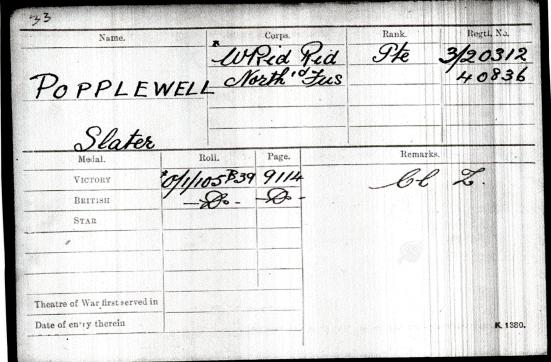 33
Name. Corps. Rank. Regtl. No.
W Rid R Pte 3/20312
POPPLEWELL North'd Fus 40836
Slater
Medal. Roll. Page. Remarks.
VICTORY O/1/105 B39 9114 Cl Z.
BRITISH —Do— —Do—
STAR
Theatre of War first served in
Date of entry therein
K. 1380.